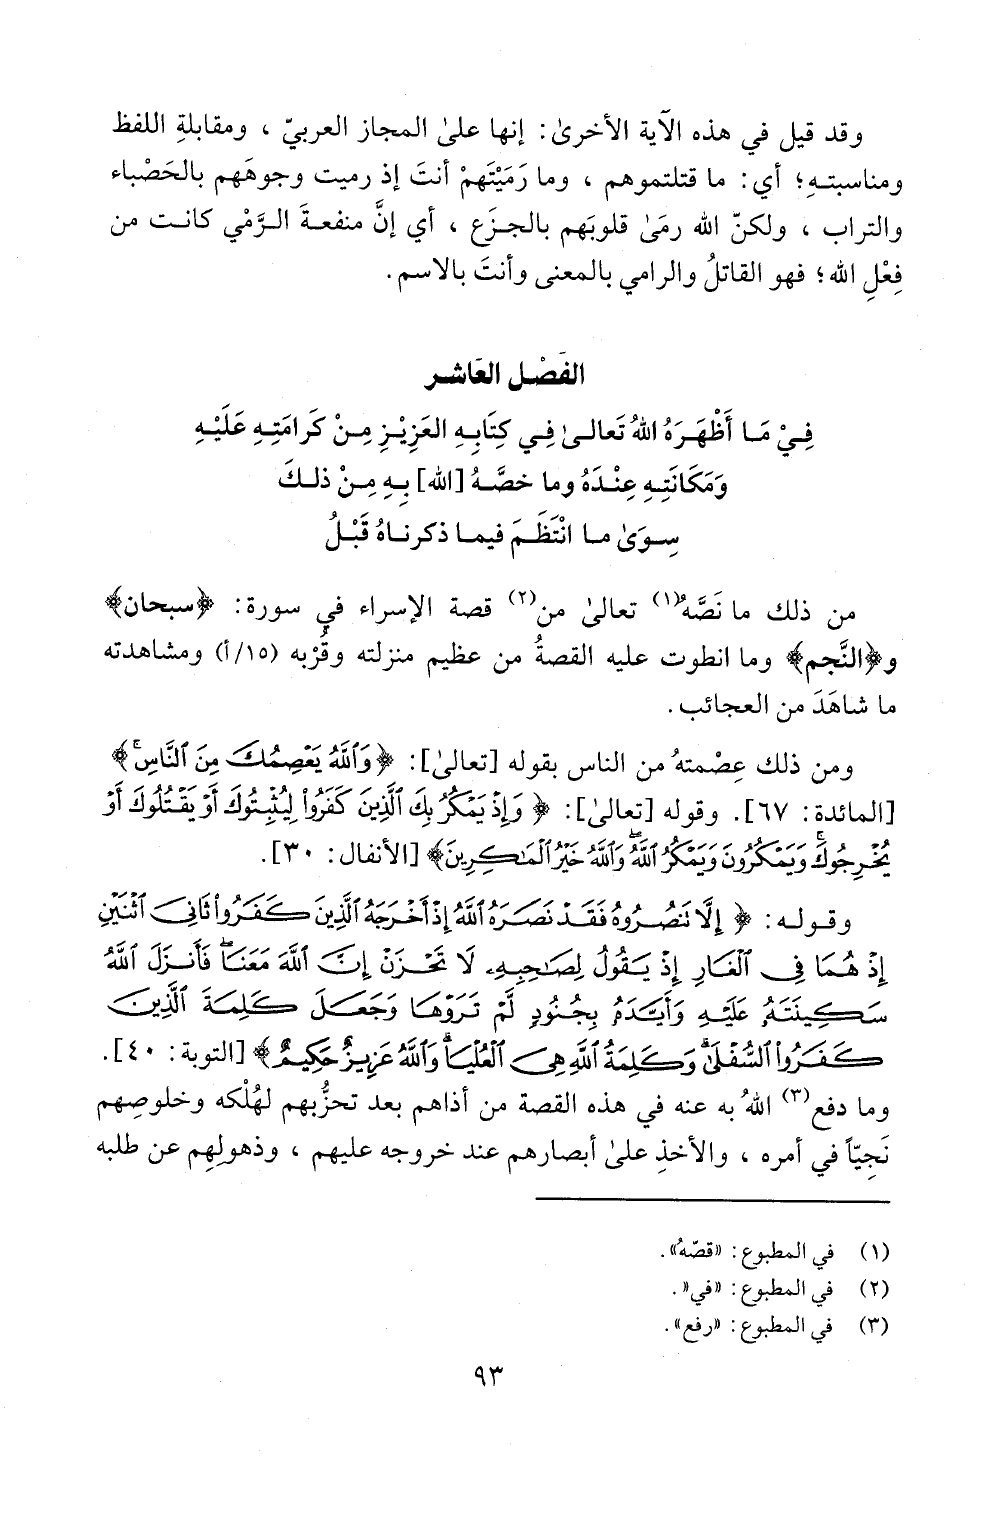 وقد قيل في هذه الآية الأخرىٰ: إنها علىٰ المجاز العربيّ ، ومقابلةِ اللفظ
ومناسبتهِ؛ أي: ما قتلتموهم ، وما رَمَيْتَهمْ أنتَ إذ رميت وجوهَهم بالحَصْباء
والتراب ، ولكنّ الله رمَىٰ قلوبَهم بالجزَع ، أي إنَّ منفعةَ الرَّمْي كانت من
فِعْلِ الله؛ فهو القاتلُ والرامي بالمعنى وأنتَ بالاسم.
الفَصْل العَاشر
فِيْ مَا أَظْهَرَهُ اللهُ تَعَالىٰ فِي كِتَابِهِ العَزِيْزِ مِنْ كَرامَتِهِ عَلَيْهِ
وَمَكَانَتِهِ عِنْدَهُ وما خصَّهُ [الله] بِهِ مِنْ ذلكَ
سِوَىٰ ما انْتَظَمَ فيما ذكرناهُ قَبْلُ
من ذلك ما نَصَّهُ(١) تعالىٰ من(٢) قصة الإسراء في سورة: ﴿سبحان﴾
و﴿النَّجم﴾ وما انطوت عليه القصةُ من عظيم منزلته وقُرْبه (١٥/أ) ومشاهدته
ما شاهَدَ من العجائب.
ومن ذلك عِصْمتهُ من الناس بقوله [تعالىٰ]: ﴿وَٱللَّهُ يَعْصِمُكَ مِنَ ٱلنَّاسِۚ﴾
[المائدة: ٦٧]. وقوله [تعالىٰ]: ﴿وَإِذْ يَمْكُرُ بِكَ ٱلَّذِينَ كَفَرُواْ لِيُثْبِتُوكَ أَوْ يَقْتُلُوكَ أَوْ
يُخْرِجُوكَۚ وَيَمْكُرُونَ وَيَمْكُرُ ٱللَّهُۖ وَٱللَّهُ خَيْرُ ٱلْمَٰكِرِينَ﴾ [الأنفال: ٣٠].
وقوله: ﴿إِلَّا تَنصُرُوهُ فَقَدْ نَصَرَهُ ٱللَّهُ إِذْ أَخْرَجَهُ ٱلَّذِينَ كَفَرُواْ ثَانِيَ ٱثْنَيْنِ
إِذْ هُمَا فِي ٱلْغَارِ إِذْ يَقُولُ لِصَٰحِبِهِۦ لَا تَحْزَنْ إِنَّ ٱللَّهَ مَعَنَاۖ فَأَنزَلَ ٱللَّهُ
سَكِينَتَهُۥ عَلَيْهِ وَأَيَّدَهُۥ بِجُنُودٍ لَّمْ تَرَوْهَا وَجَعَلَ كَلِمَةَ ٱلَّذِينَ
كَفَرُواْ ٱلسُّفْلَىٰۗ وَكَلِمَةُ ٱللَّهِ هِيَ ٱلْعُلْيَاۗ وَٱللَّهُ عَزِيزٌ حَكِيمٌ﴾ [التوبة: ٤٠].
وما دفع(٣) اللهُ به عنه في هذه القصة من أذاهم بعد تحزُّبهم لهُلْكه وخلوصِهم
نَجِيّاً في أمره ، والأخذِ علىٰ أبصارهم عند خروجه عليهم ، وذهولِهم عن طلبه
(١) في المطبوع: «قصّهُ».
(٢) في المطبوع: «في».
(٣) في المطبوع: «رفع».
٩٣